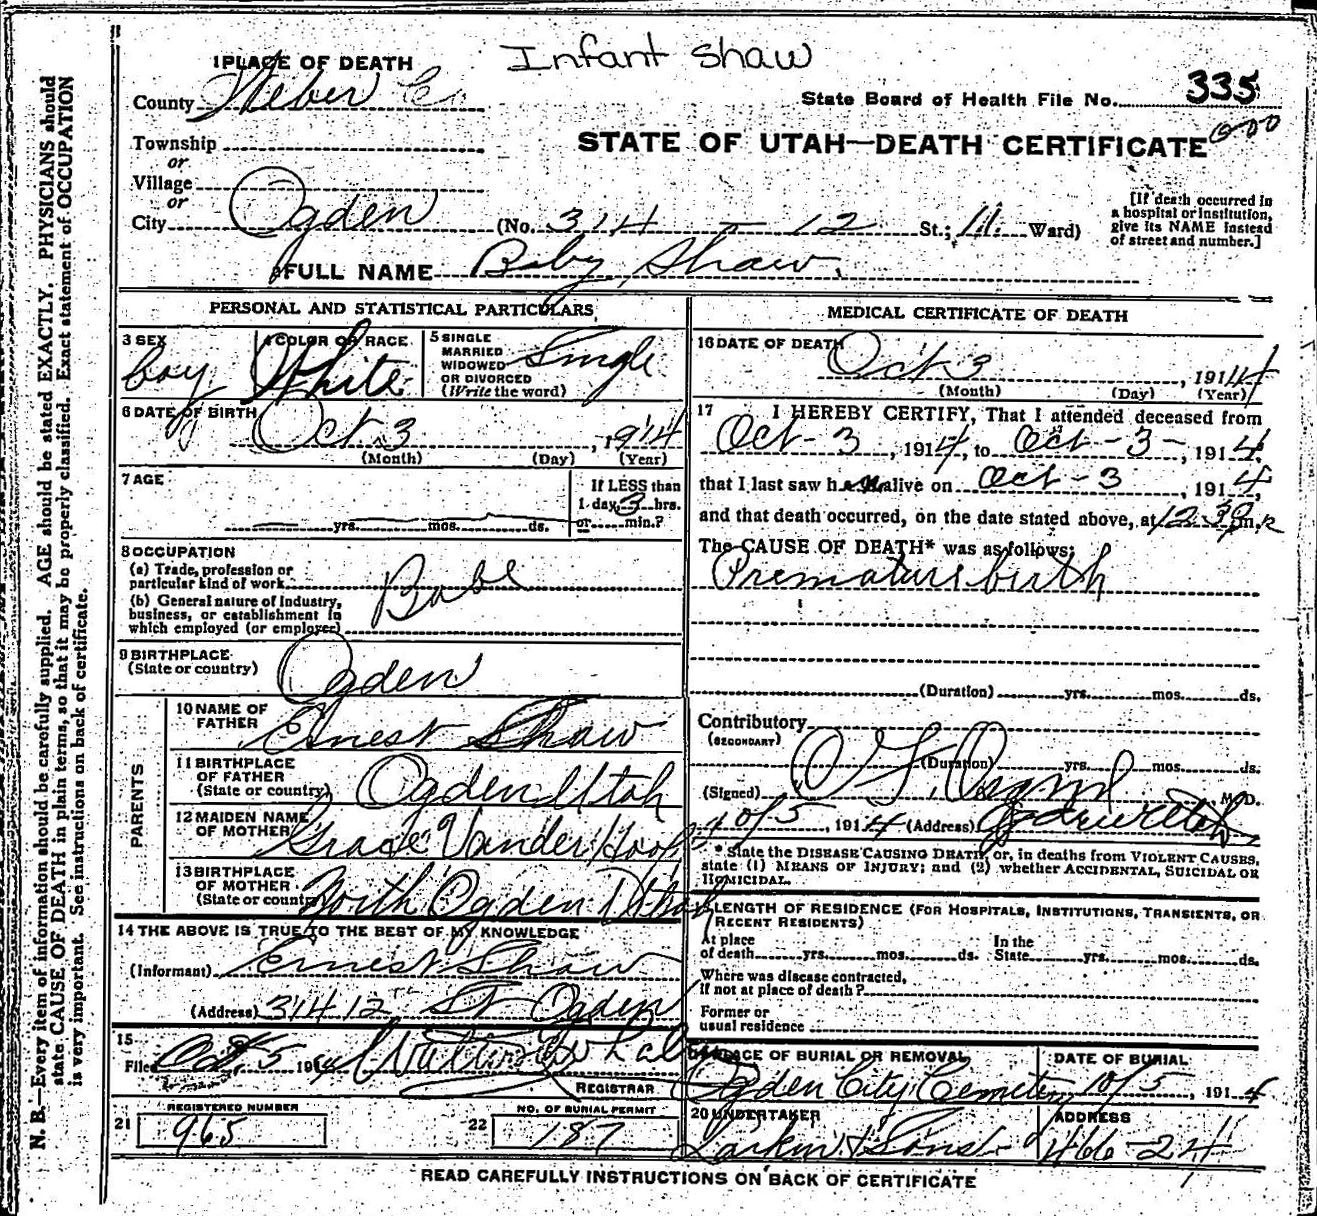 Infant Shaw
1 PLACE OF DEATH
County Weber Co.
State Board of Health File No. 335
STATE OF UTAH—DEATH CERTIFICATE
Township
or
Village
or
City Ogden (No. 314 - 12 St.; Ward)
[If death occurred in
a hospital or institution,
give its NAME instead
of street and number.]
FULL NAME Baby Shaw.
PERSONAL AND STATISTICAL PARTICULARS
3 SEX boy
4 COLOR OR RACE White
5 SINGLE
MARRIED
WIDOWED
OR DIVORCED
(Write the word) Single
6 DATE OF BIRTH
Oct 3, 1914
(Month) (Day) (Year)
7 AGE
If LESS than
1 day, 3 hrs.
yrs. mos. ds. or min.?
8 OCCUPATION
(a) Trade, profession or
particular kind of work Babe
(b) General nature of industry,
business, or establishment in
which employed (or employer)
9 BIRTHPLACE
(State or country) Ogden
PARENTS
10 NAME OF
FATHER Ernest Shaw
11 BIRTHPLACE
OF FATHER
(State or country) Ogden Utah
12 MAIDEN NAME
OF MOTHER Grace Vander Hoof
13 BIRTHPLACE
OF MOTHER
(State or country) North Ogden Utah
14 THE ABOVE IS TRUE TO THE BEST OF MY KNOWLEDGE
(Informant) Ernest Shaw
(Address) 314 12th St Ogden
15
Filed Oct 5 1914
REGISTRAR
21 REGISTERED NUMBER
965
22 NO. OF BURIAL PERMIT
187
MEDICAL CERTIFICATE OF DEATH
16 DATE OF DEATH
Oct 3, 1914
(Month) (Day) (Year)
17 I HEREBY CERTIFY, That I attended deceased from
Oct - 3, 1914, to Oct - 3 -, 1914,
that I last saw h alive on Oct - 3, 1914,
and that death occurred, on the date stated above, at 12:30 m.
The CAUSE OF DEATH* was as follows:
Premature birth
(Duration) yrs. mos. ds.
Contributory
(SECONDARY)
(Duration) yrs. mos. ds.
(Signed) M.D.
10/5, 1914 (Address) Ogden Utah
* State the DISEASE CAUSING DEATH, or, in deaths from VIOLENT CAUSES,
state (1) MEANS OF INJURY; and (2) whether ACCIDENTAL, SUICIDAL OR
HOMICIDAL.
LENGTH OF RESIDENCE (FOR HOSPITALS, INSTITUTIONS, TRANSIENTS, OR
RECENT RESIDENTS)
At place
of death yrs. mos. ds.
In the
State yrs. mos. ds.
Where was disease contracted,
if not at place of death?
Former or
usual residence
PLACE OF BURIAL OR REMOVAL
Ogden City Cemetery
DATE OF BURIAL
10/5, 1914
20 UNDERTAKER
Larkin & Sons
ADDRESS
466-24
READ CAREFULLY INSTRUCTIONS ON BACK OF CERTIFICATE
N. B.—Every item of information should be carefully supplied. AGE should be stated EXACTLY. PHYSICIANS should
state CAUSE OF DEATH in plain terms, so that it may be properly classified. Exact statement of OCCUPATION
is very important. See instructions on back of certificate.